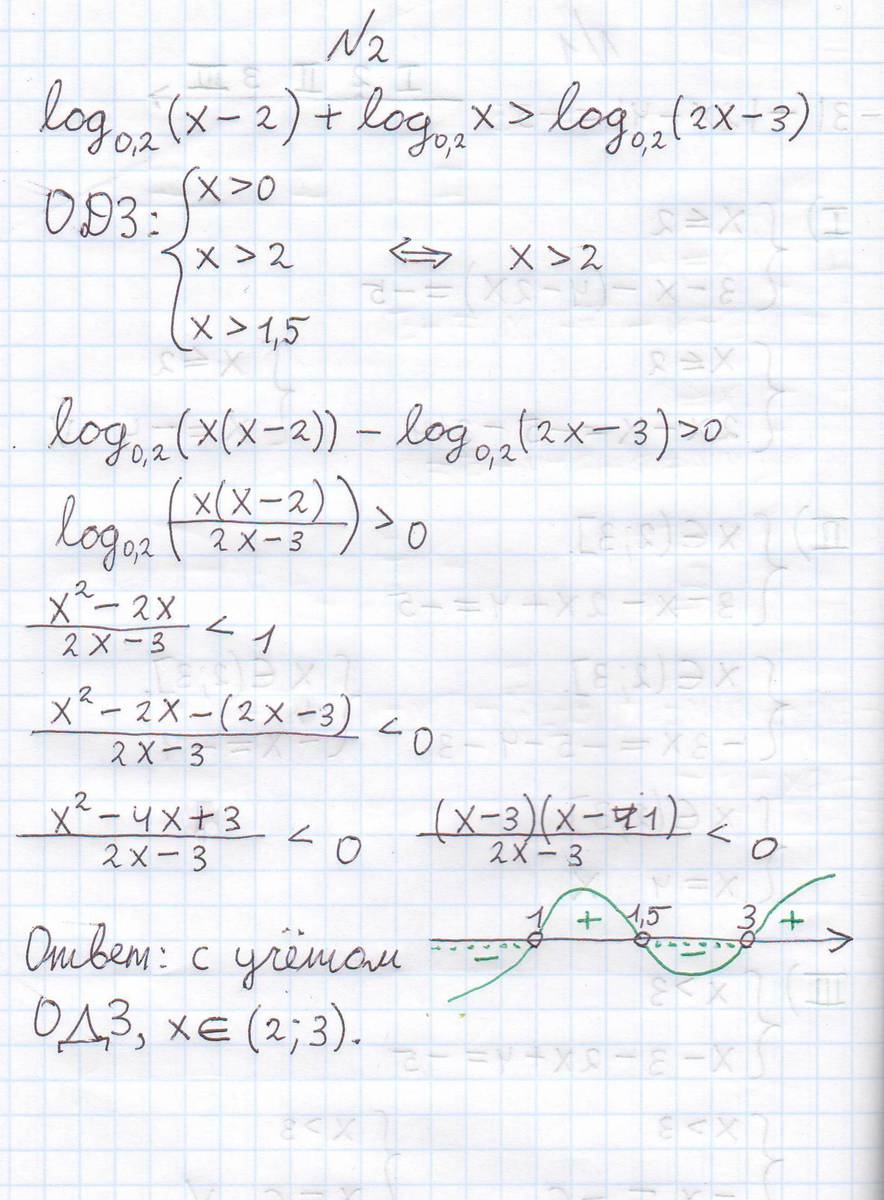 №2
log₀,₂(x-2) + log₀,₂x > log₀,₂(2x-3)
ОДЗ: { x>0
x>2 ⇔ x>2
x>1,5
log₀,₂(x(x-2)) - log₀,₂(2x-3)>0
log₀,₂(x(x-2)/2x-3) > 0
x²-2x/2x-3 < 1
x²-2x-(2x-3)/2x-3 < 0
x²-4x+3/2x-3 < 0 (x-3)(x-1)/2x-3 < 0
1 1,5 3
- + - +
Ответ: с учётом
ОДЗ, x∈(2;3).